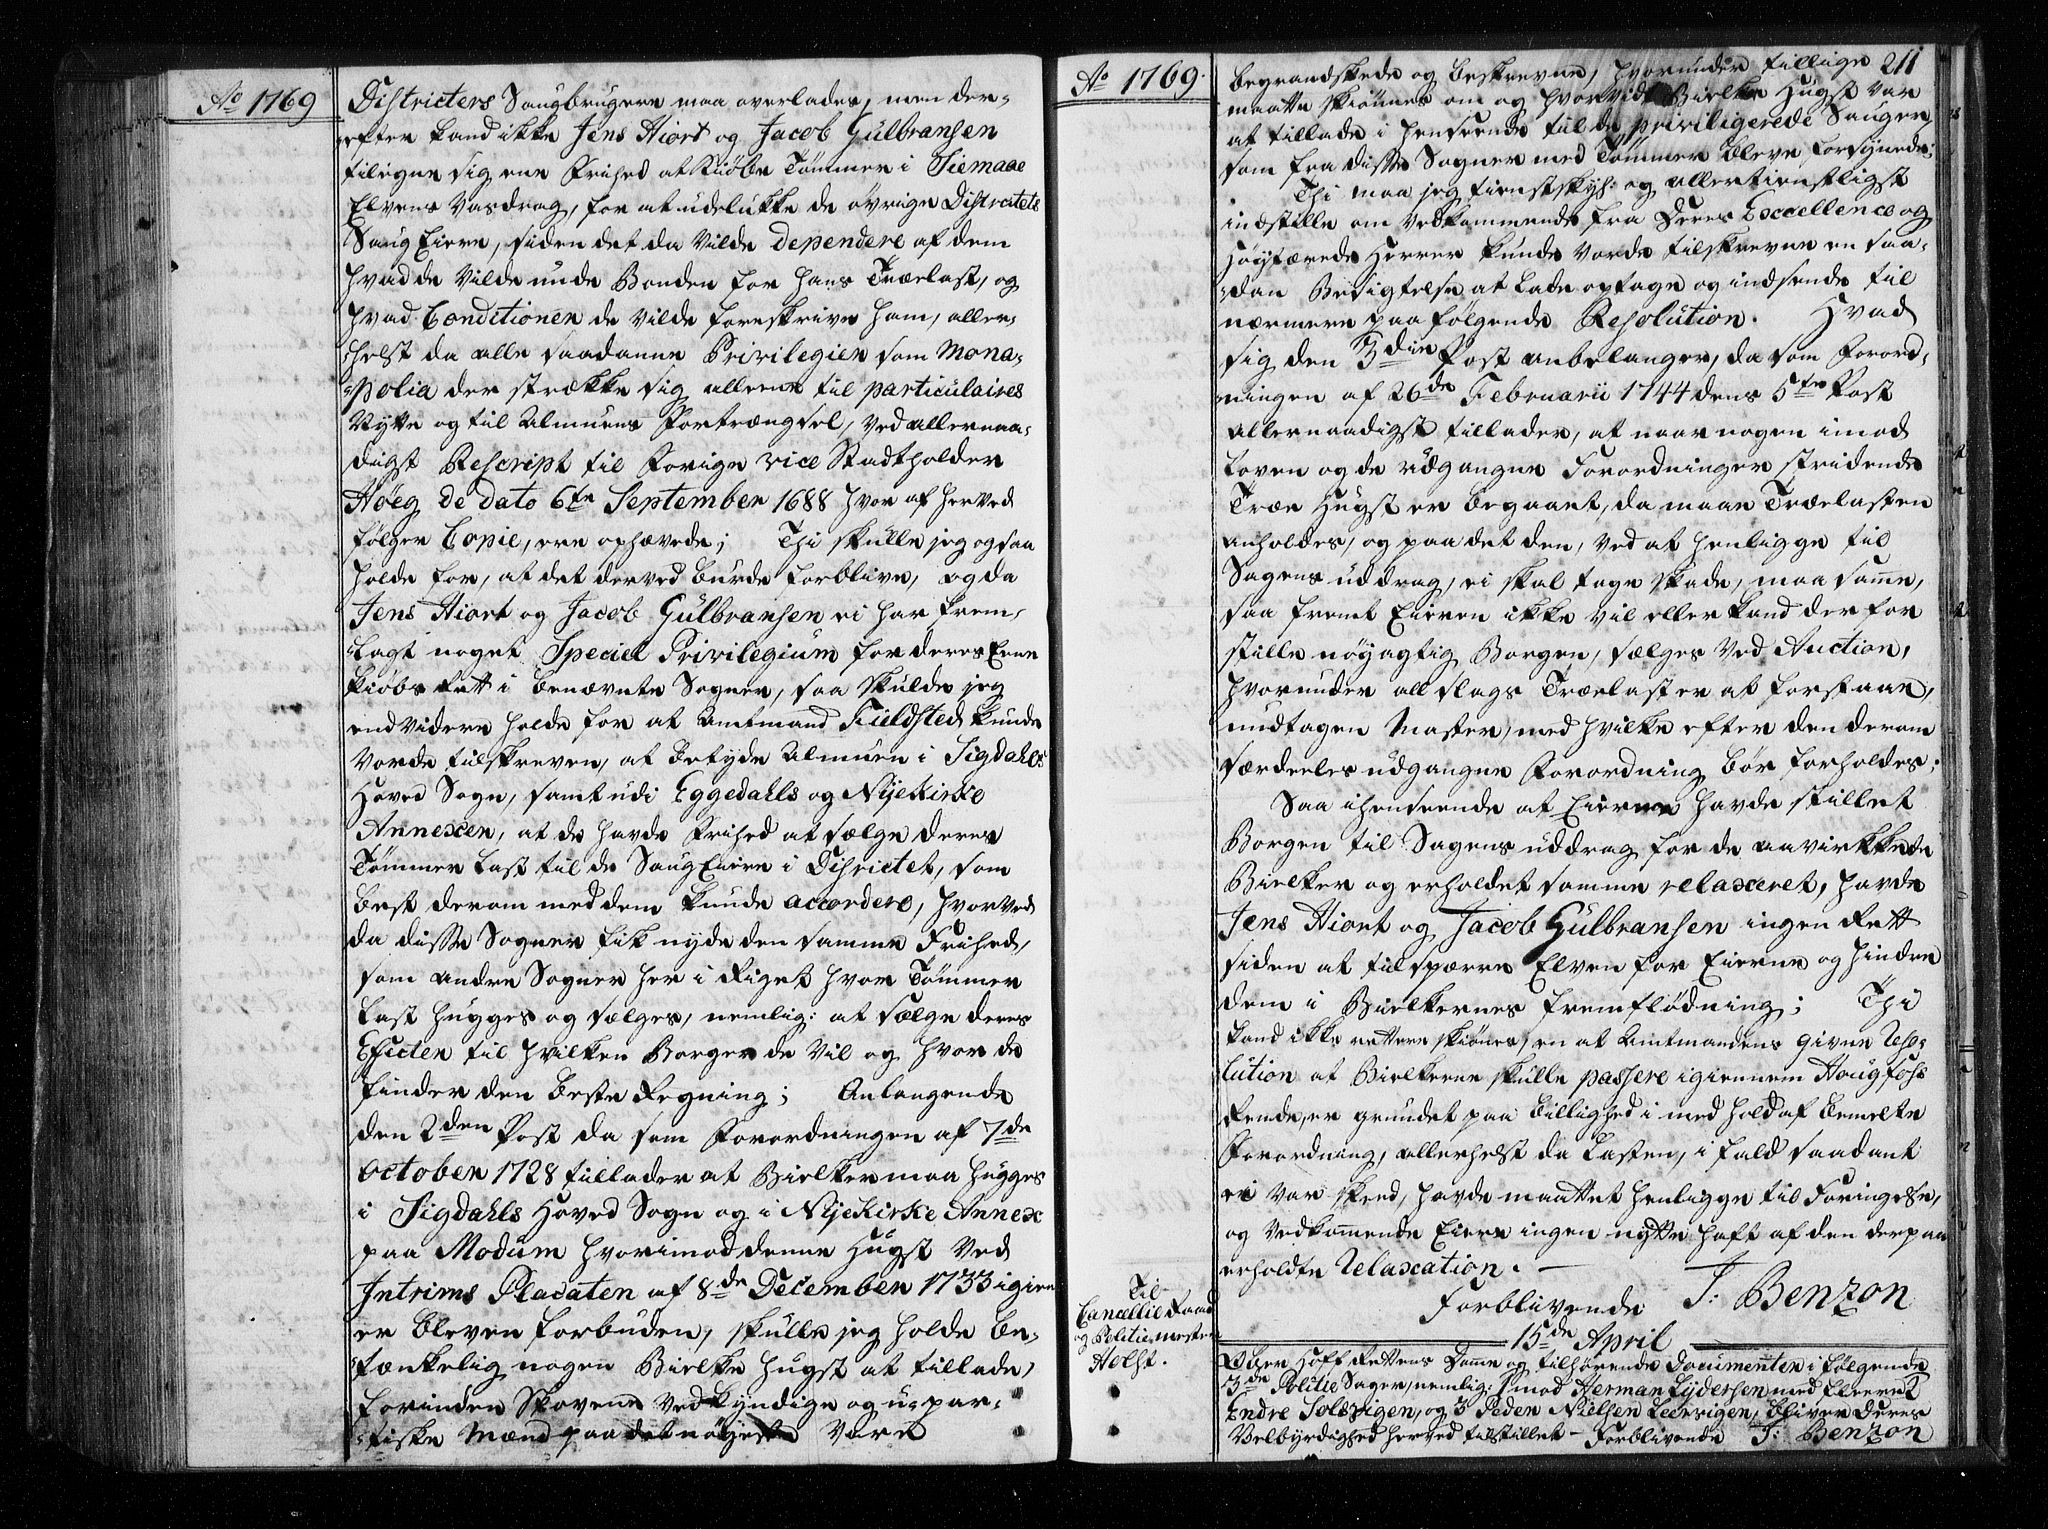 Ao 1769
Districters Saugbrugere maa overlades, men der-
efter kand ikke Jens Hiort og Jacob Gülbransen
tilegne sig ene Frihed at kiøbe Tømmer i Siemaae
Elvens Vasdrag, for at udelukke de øvrige Districtets
Saug Eiere, siden det da vilde dependere af dem
hvad de vilde unde Bonden for hans Trælast, og
hvad Conditionen de vilde foreskrive ham, aller-
helst da alle saadanne Privilegier som Mona-
polia der strække sig alleene til particulaires
Nytte og til Almuens Fortrængsel, ved allernaa-
digst Rescript til Forige vice Stadtholder
Høeg de dato 6te September 1688 hvor af herved
følger Copie, ere ophævede; Thi skulle jeg ogsaa
holde for, at det derved burde forblive, og da
Jens Hiort og Jacob Gülbransen ei har frem-
lagt noget Speciel Privilegium for deres Eene
kiøbs Rett i benævnte Sogner, saa skulde jeg
endvidere holde for at Amtmand Fieldsted kunde
vorde tilskreven, at betyde Almuen i Sigdahls
Hoved Sogn, samt udi Eggedahls og Nijekirke
Annexer, at de havde Frihed at sælge deres
Tømmer Last til de Saug Eiere i Districtet, som
best derom med dem kunde accordere, hvorved
da disse Sogner fik nyde den samme Frihed,
som andre Sogner her i Riget hvor Tømmer
Last hugges og sælges, nemlig: at sælge deres
Effecter til hvilken Borger de vil og hvor de
finder den beste Regning; Anlangende
den 2den Post da som Forordningen af 7de
October 1728 tillader at Bielker maa hugges
i Sigdahls Hoved Sogn og i Nijekirke Annex
paa Modum hvorimod denne Hugst ved
Intrims Placaten af 8de December 1733 igien
er bleven forbuden, skulle jeg holde be-
tænkelig nogen Bielke Hugst at tillade,
forinden Skovene ved kyndige og u-par-
tiske Mænd paa det nøyeste vare
Ao 1769.
211
begrandskede og beskrevne, hvorunder tillige
maatte skiønnes om og hvorvidt Bielke Hugst var
at tillade i henseende til de priviligerede Sauger
som fra disse Sogner med Tømmer bleve forsynede;
Thi maa jeg tienstskyl: og allertienstligst
indstille om vedkommende fra Deres Excellence og
Høytærede Herrer kunde vorde tilskrevne en saa-
dan Besigtelse at lade optage og indsende til
nærmere paafølgende Resolution. Hvad
sig den 3die Post anbelanger, da som Forord-
ningen af 26de Februarii 1744 dens 5te Post
allernaadigst tillader, at naar nogen imod
Loven og de udgangne Forordninger stridende
Træe Hugst er begaaet, da maae Trælasten
anholdes, og paa det den, ved at henligge til
Sagens uddrag, ei skal tage skade, maa samme,
saa fremt Eieren ikke vil eller kand derfor
stille nøyagtig Borgen, sælges ved Auction,
hvorunder all slags Trælast er at forstaae,
undtagen Master, med hvilke efter den derom
særdeeles udgangne Forordning bør forholdes;
Saa i henseende at Eierne havde stillet
Borgen til Sagens uddrag for de aavirkkede
Bielker og erholdet samme relaxeret, havde
Jens Hiort og Jacob Gülbransen ingen Rett
siden at tilspærre Elven for Eierne og hindre
dem i Bielkernes fremflødning; Thi
kand ikke rettere skiønes, en at Amtmandens given Reso-
lution at Bielkerne skulle passere igiennem Haugfoss
Rende, er grundet paa billighed i medhold af bemelte
Forordning, allerhelst da Lasten, i fald saadant
ei var skeed, havde maattet henligge til Foringelse,
og vedkomende Eiere ingen nytte haft af den derpaa
erholdte Relaxation. —
Forblivende J: Benzon
15de April
Til
Cancellie Raad
og Politiemester
Holst.
Over Hoff Rettens Domme og tilhørende Documenter i følgende
3de Politie Sager, nemlig: 1 mod Herman Lydersen med fleere
Endre Solsvigen, og 3 Peder Nielsen Leervigen, bliver Deres
Velbyrdighed herved tilstillet – Forblivende J: Benzon